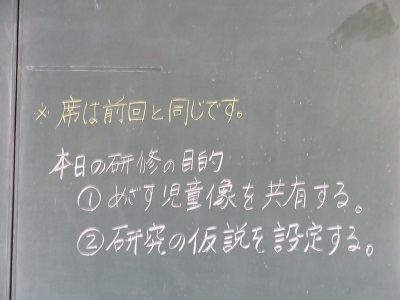 ※ 席は前回と同じです。
本日の研修の目的
① めざす児童像を共有する。
② 研究の仮説を設定する。